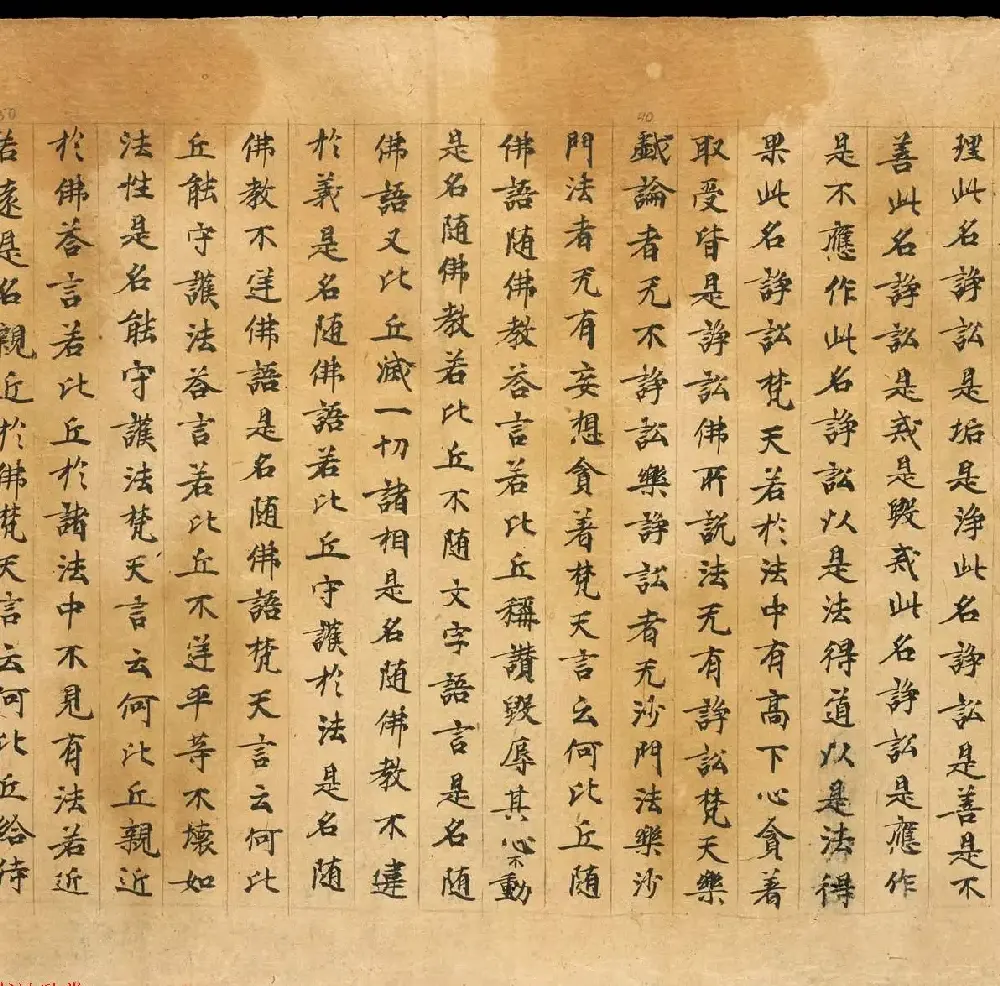 理此名諍訟是垢是淨此名諍訟是善是不
善此名諍訟是戒是毀戒此名諍訟是應作
是不應作此名諍訟以是法得道以是法得
果此名諍訟梵天若於法中有高下心貪著
取受皆是諍訟佛所説法无有諍訟梵天樂
40
戲論者无不諍訟樂諍訟者无沙門法樂沙
門法者无有妄想貪著梵天言云何比丘随
佛語随佛教荅言若比丘稱讚毀辱其心不動
是名随佛教若比丘不随文字語言是名随
佛語又比丘滅一切諸相是名随佛教不違
於義是名随佛語若比丘守護於法是名随
佛教不逆佛語是名随佛語梵天言云何比
丘能守護法荅言若比丘不逆平等不壞如
法性是名能守護法梵天言云何比丘親近
於佛荅言若比丘於諸法中不見有法若近
50
若遠是名親近於佛梵天言云何比丘給侍